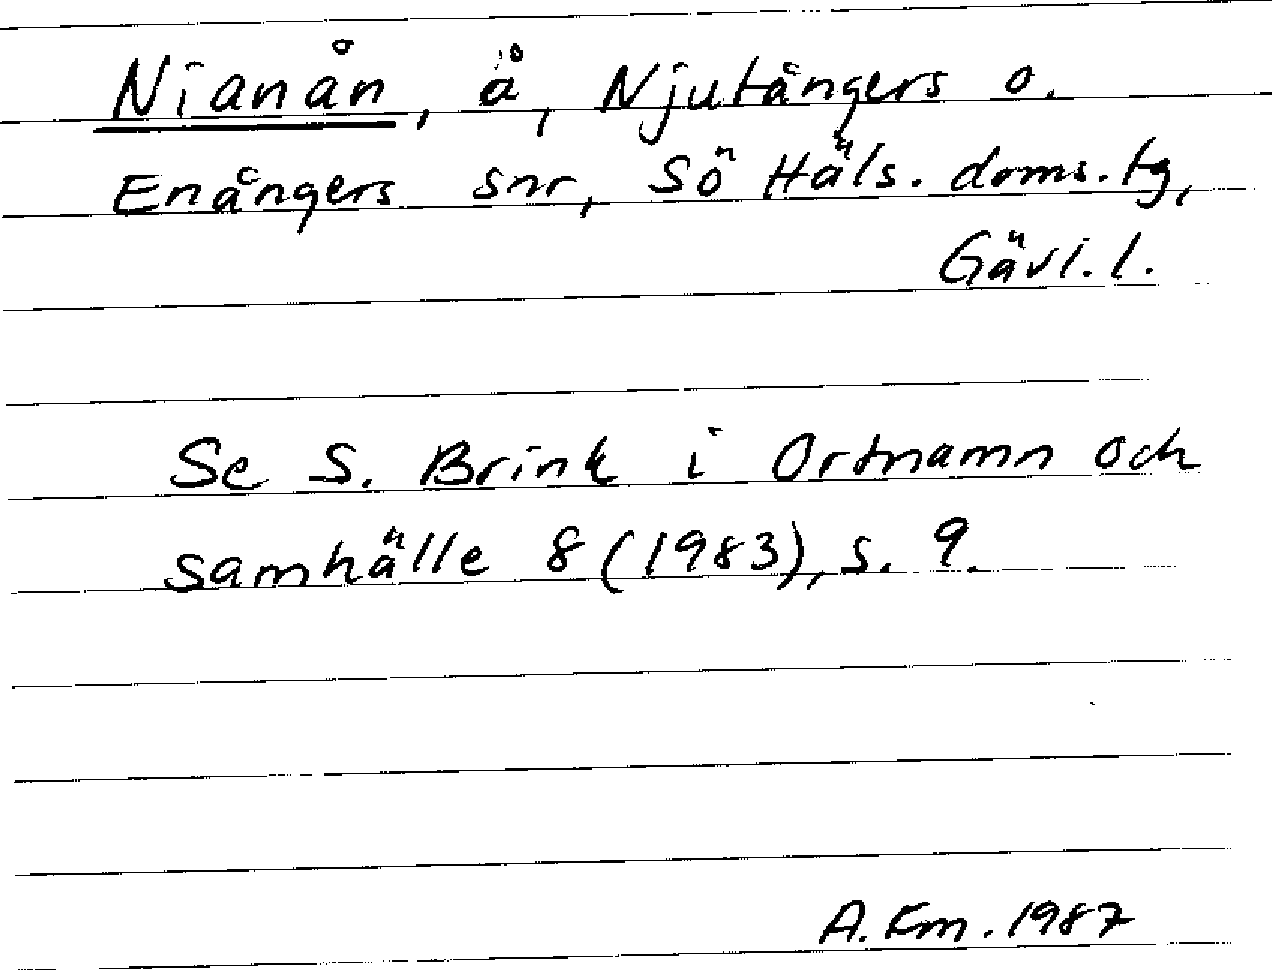 Nianån, å, Njutångers o.
Enångers snr, Sö Häls. doms.tg,
Gävl. l.
Se S. Brink i Ortnamn och
samhälle 8 (1983), s. 9.
A. Fm. 1987